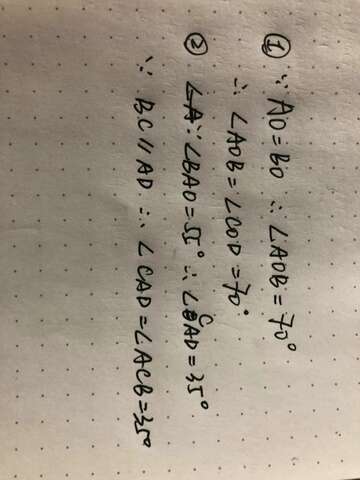 ① ∵ AO=BO ∴ ∠AOB=70°
∴ ∠AOB=∠COD=70°
② ∵ ∠BAO=55° ∴ ∠CAD=35°
∵ BC∥AD ∴ ∠CAD=∠ACB=35°